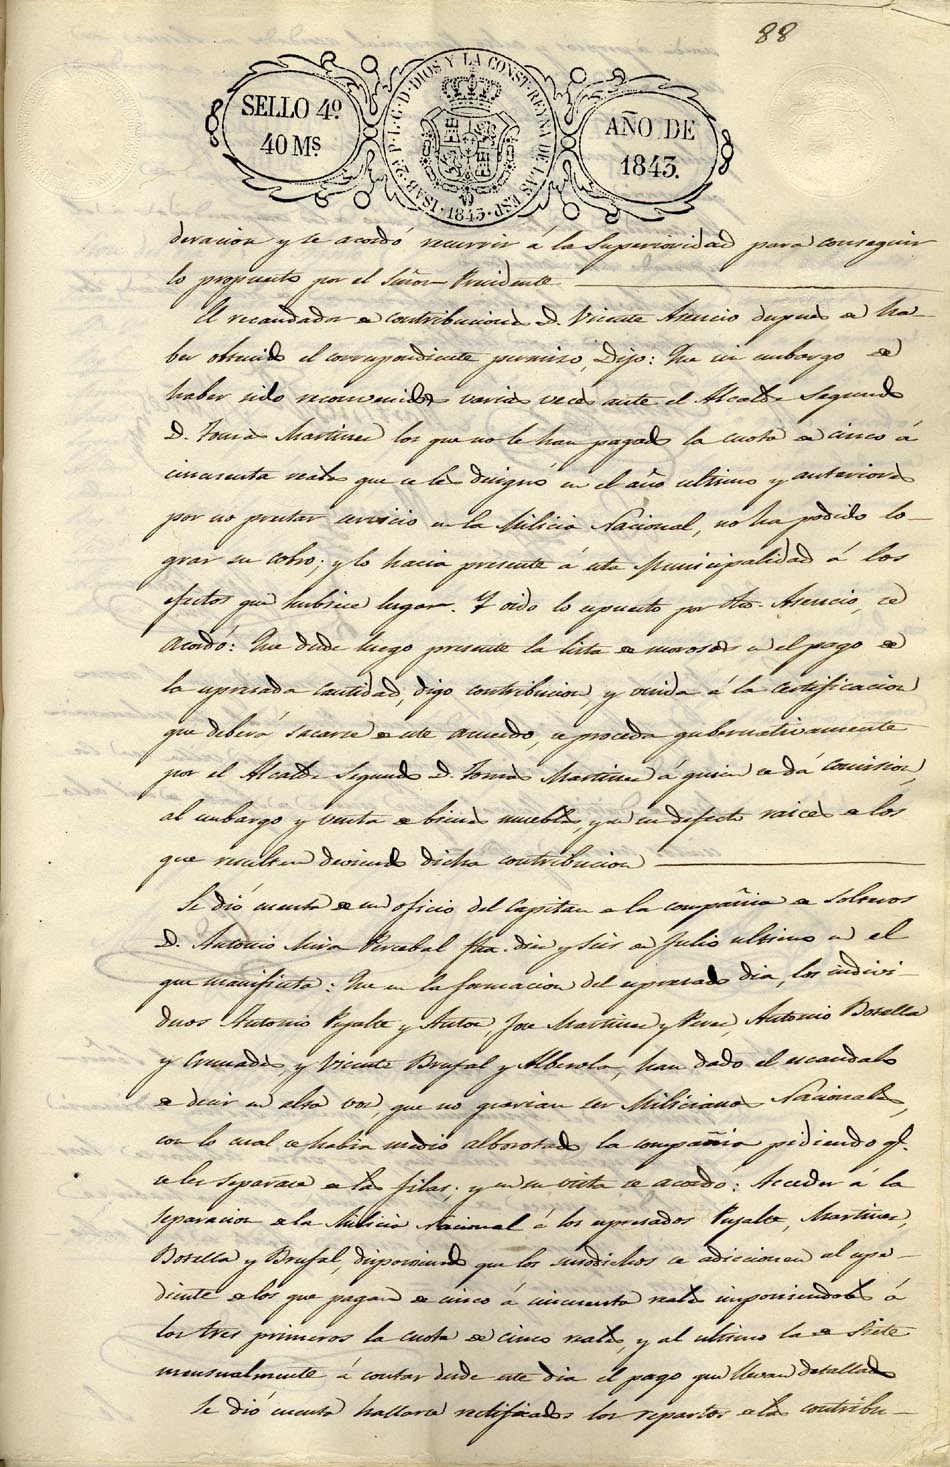 88
SELLO 4º.
40 Ms.
ISAB. 2ª. P. L. G. D. DIOS Y LA CONST. REYNA DE LAS ESP. 1843.
AÑO DE
1843.
deracion y se acordó recurrir á la Superioridad para conseguir
lo propuesto por el Señor Presidente
El recaudador de contribuciones D. Vicente Asencio despues de ha-
ber obtenido el correspondiente permiso, Dijo: Que sin embargo de
haber sido reconvenidos varias veces ante el Alcalde Segundo
D. Tomas Martinez los que no le han pagado la cuota de cinco á
cincuenta reales que se les designó en el año ultimo y anteriores
por no prestar servicio en la Milicia Nacional, no ha podido lo-
grar su cobro; y lo hacia presente á esta Municipalidad á los
efectos que hubiese lugar. Y oido lo espuesto por dho. Asencio, se
acordó: Que desde luego presente la lista de morosos en el pago de
la espresada cantidad, digo contribucion, y unida á la certificacion
que deberá sacarse de este acuerdo, se proceda gubernativamente
por el Alcalde Segundo D. Tomas Martinez á quien se dá comision,
al embargo y venta de bienes muebles, y en su defecto raices de los
que resulten deviendo dicha contribucion
Se dió cuenta de un oficio del Capitan de la compañia de Solteros
D. Antonio Mira Percebal fha. diez y seis de Julio ultimo en el
que manifiesta: Que en la formacion del espresado dia, los indivi-
duos Antonio Pujalte y Antor, Jose Martinez y Perez, Antonio Botella
y Cremades, y Vicente Brufal y Alberola, han dado el escandalo
de decir en alta voz, que no querian ser Milicianos Nacionales,
con lo cual se habia medio alborotado la compañia pidiendo q.e
se les separase de las filas; y en su vista se acordó: Acceder á la
separacion de la Milicia Nacional á los espresados Pujalte, Martinez,
Botella y Brufal, disponiendo que los susodichos se adiccionen al espe-
diente de los que pagan de cinco á cincuenta reales imponiendoles á
los tres primeros la cuota de cinco reales, y al ultimo la de siete
mensualmente á contar desde este dia el pago que llevan detallado
Se dió cuenta hallarse rectificados los repartos de las contribu-